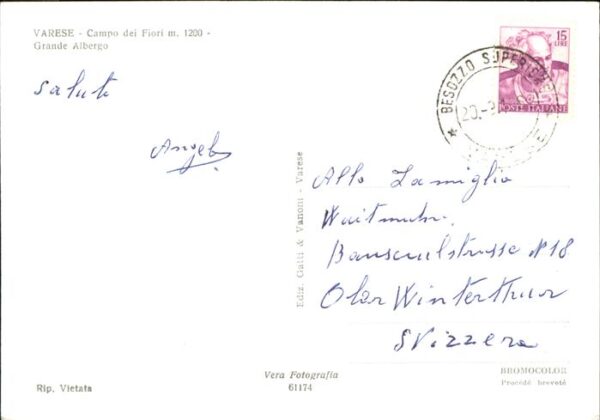 VARESE - Campo dei Fiori m. 1200 -
Grande Albergo
15
LIRE
POSTE ITALIANE
BESOZZO SUPERIORE
20.-9
Saluti
Angelo
Alla Famiglia
Waitmuhr.
Bansculstrasse N 18
Ober Winterthur
SVizzera
Ediz. Gatti & Vanoni - Varese
Vera Fotografia
61174
Rip. Vietata
BROMOCOLOR
Procédé breveté